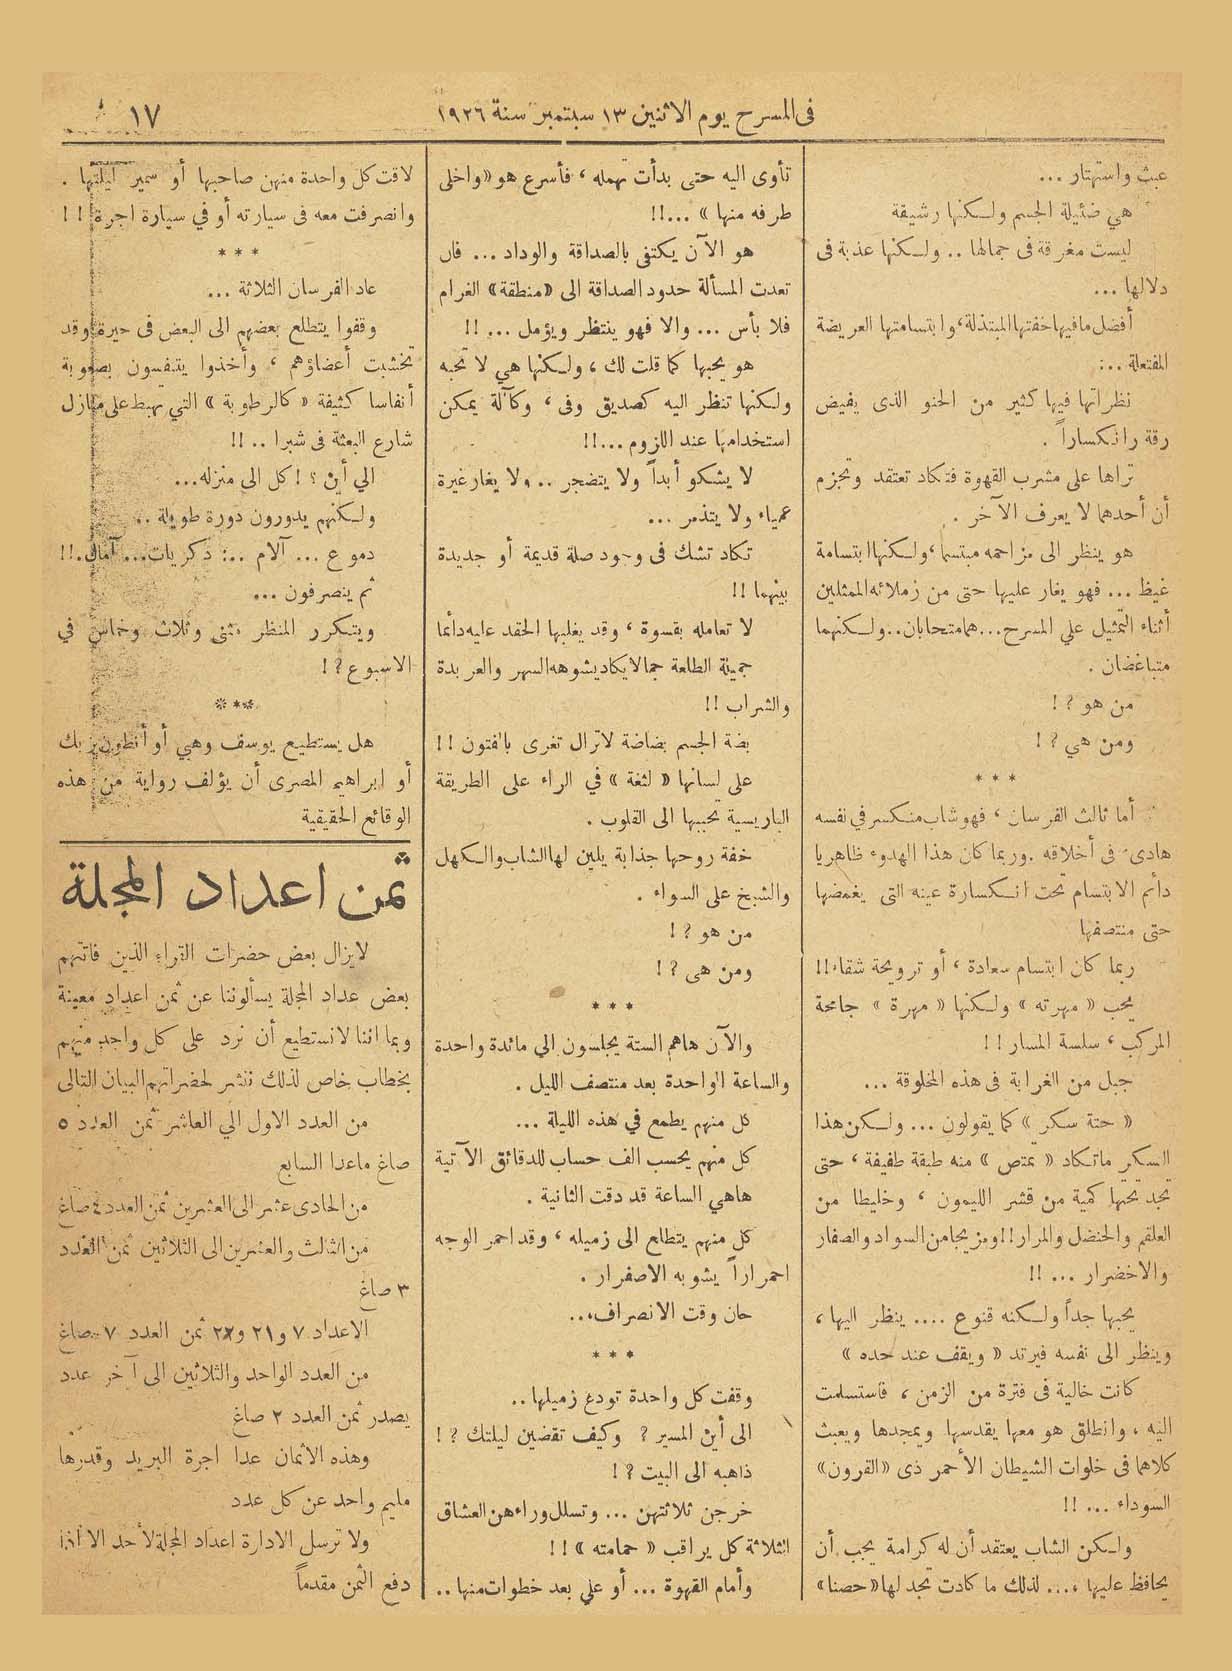 فى المسرح يوم الاثنين ١٣ سبتمبر سنة ١٩٢٦
١٧
عبث واستهتار ...
هي ضئيلة الجسم ولكنها رشيقة
ليست مغرقة فى جمالها .. ولكنها عذبة فى
دلالها ...
أفضل مافيها خفتها المبتذلة، وابتسامتها العريضة
المفتعلة ..:
نظراتها فيها كثير من الحنو الذى يفيض
رقة رانكساراً .
تراها على مشرب القهوة فتكاد تعتقد وتجزم
أن أحدهما لا يعرف الآخر .
هو ينظر الى مزاحمه مبتسما، ولكنها ابتسامة
غيظ ... فهو يغار عليها حتى من زملائه الممثلين
أثناء التمثيل علي المسرح... هما متحابان.. ولكنهما
متباغضان .
من هو ؟!
ومن هي ؟!
***
أما ثالث الفرسان ، فهو شاب منكسر في نفسه
هادىء فى أخلاقه . وربما كان هذا الهدوء ظاهريا
دائم الابتسام تحت انكسارة عينه التى يغمضها
حتى منتصفها
ربما كان ابتسام سعادة ، أو ترويحة شقاء !!
يحب « مهرته » ولكنها « مهرة » جامحة
المركب ، سلسة المسار !!
جبل من الغرابة فى هذه المخلوقة ...
« حتة سكر » كما يقولون ... ولكن هذا
السكر ماتكاد « تمتص » منه طبقة طفيفة ، حتى
تجد تحتها كمية من قشر الليمون ، وخليطا من
العلقم والحنضل والمرار !! ومزيجا من السواد والصفار
والاخضرار ... !!
يحبها جداً ولكنه قنوع .... ينظر اليها ،
وينظر الى نفسه فيرتد « ويقف عند حده »
كانت خالية فى فترة من الزمن ، فاستسلمت
اليه ، وانطلق هو معها يقدسها ويمجدها ويعبث
كلاهما فى خلوات الشيطان الأحمر ذى « القرون »
السوداء ... !!
ولكن الشاب يعتقد أن له كرامة يجب أن
يحافظ عليها .... لذلك ما كادت تجد لها « حصنا »
تأوى اليه حتى بدأت تهمله ، فأسرع هو « واخلى
طرفه منها » ...!!
هو الآن يكتفى بالصداقة والوداد ... فان
تعدت المسألة حدود الصداقة الى « منطقة » الغرام
فلا بأس ... والا فهو ينتظر ويؤمل ... !!
هو يحبها كما قلت لك ، ولكنها هي لا تحبه
ولكنها تنظر اليه كصديق وفى ، وكآلة يمكن
استخدامها عند اللزوم ...!!
لا يشكو أبداً ولا يتضجر .. ولا يغار غيرة
عمياء ولا يتذمر ...
تكاد تشك فى وجود صلة قديمة أو جديدة
بينهما !!
لا تعامله بقسوة ، وقد يغلبها الحقد عليه دائما
جميلة الطلعة جمالا يكاد يشوهه السهر والعربدة
والشراب !!
بضة الجسم بضاضة لاتزال تغرى بالفتون !!
على لسانها « لثغة » في الراء على الطريقة
الباريسية تحببها الى القلوب .
خفة روحها جذابة يلين لها الشاب والكهل
والشيخ على السواء .
من هو ؟!
ومن هى ؟!
***
والآن هاهم الستة يجلسون الي مائدة واحدة
والساعة الواحدة بعد منتصف الليل .
كل منهم يطمع في هذه الليلة ...
كل منهم يحسب الف حساب للدقائق الآتية
هاهي الساعة قد دقت الثانية .
كل منهم يتطلع الى زميله ، وقد احمر الوجه
احمراراً يشوبه الاصفرار .
حان وقت الانصراف...
***
وقفت كل واحدة تودع زميلها ..
الى أين المسير ؟ وكيف تقضين ليلتك ؟!
ذاهبه الى البيت ؟!
خرجن ثلاثتهن ... وتسلل وراءهن العشاق
الثلاثة كل يراقب « حمامته » !!
وأمام القهوة ... أو علي بعد خطوات منها ..
لاقت كل واحدة منهن صاحبها أو سمير ليلتها .
وانصرفت معه فى سيارته أو في سيارة اجرة !!
***
عاد الفرسان الثلاثة ...
وقفوا يتطلع بعضهم الى البعض فى حيرة وقد
تخشبت أعضاؤهم ، وأخذوا يتنفسون بصعوبة
أنفاسا كثيفة « كالرطوبة » التي تهبط على منازل
شارع البعثة فى شبرا .. !!
الي أين ؟ ! كل الى منزله...
ولكنهم يدورون دورة طويلة ..
دموع ... آلام ..: ذكريات... آمال.!!
ثم ينصرفون ...
ويتكرر المنظر مثنى وثلاث وخماس في
الاسبوع ؟!
***
هل يستطيع يوسف وهبي أو أنطون يزبك
أو ابراهيم المصرى أن يؤلف رواية من هذه
الوقائع الحقيقية
ثمن اعداد المجلة
لايزال بعض حضرات القراء الذين فاتتهم
بعض عداد المجلة يسألوننا عن ثمن اعداد معينة
وبما اننا لا نستطيع أن نرد على كل واحد منهم
بخطاب خاص لذلك ننشر لحضراتهم البيان التالى
من العدد الاول الي العاشر ثمن العدد ٥
صاغ ماعدا السابع
من الحادى عشر الى العشرين ثمن العدد ٤ صاغ
من الثالث والعشرين الى الثلاثين ثمن العدد
٣ صاغ
الاعداد ٧ و ٢١ و ٢٢ ثمن العدد ٧ صاغ
من العدد الواحد والثلاثين الى آخر عدد
يصدر ثمن العدد ٢ صاغ
وهذه الأثمان عدا اجرة البريد وقدرها
مليم واحد عن كل عدد
ولا ترسل الادارة اعداد المجلة لأحد الا اذا
دفع الثمن مقدماً